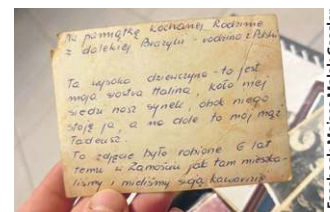 Na pamiątkę kochanej Rodzinie
z dalekiej Brazylii - rodzina z Polski
Ta wysoka dziewczyna - to jest
moja siostra Halina, koło niej
siedzi nasz synek, obok niego
stoję ja, a na dole to mój mąż
Tadeusz.
To zdjęcie było robione 6 lat
temu w Zamościu jak tam mieszka-
liśmy i mieliśmy swoją kawiarnię